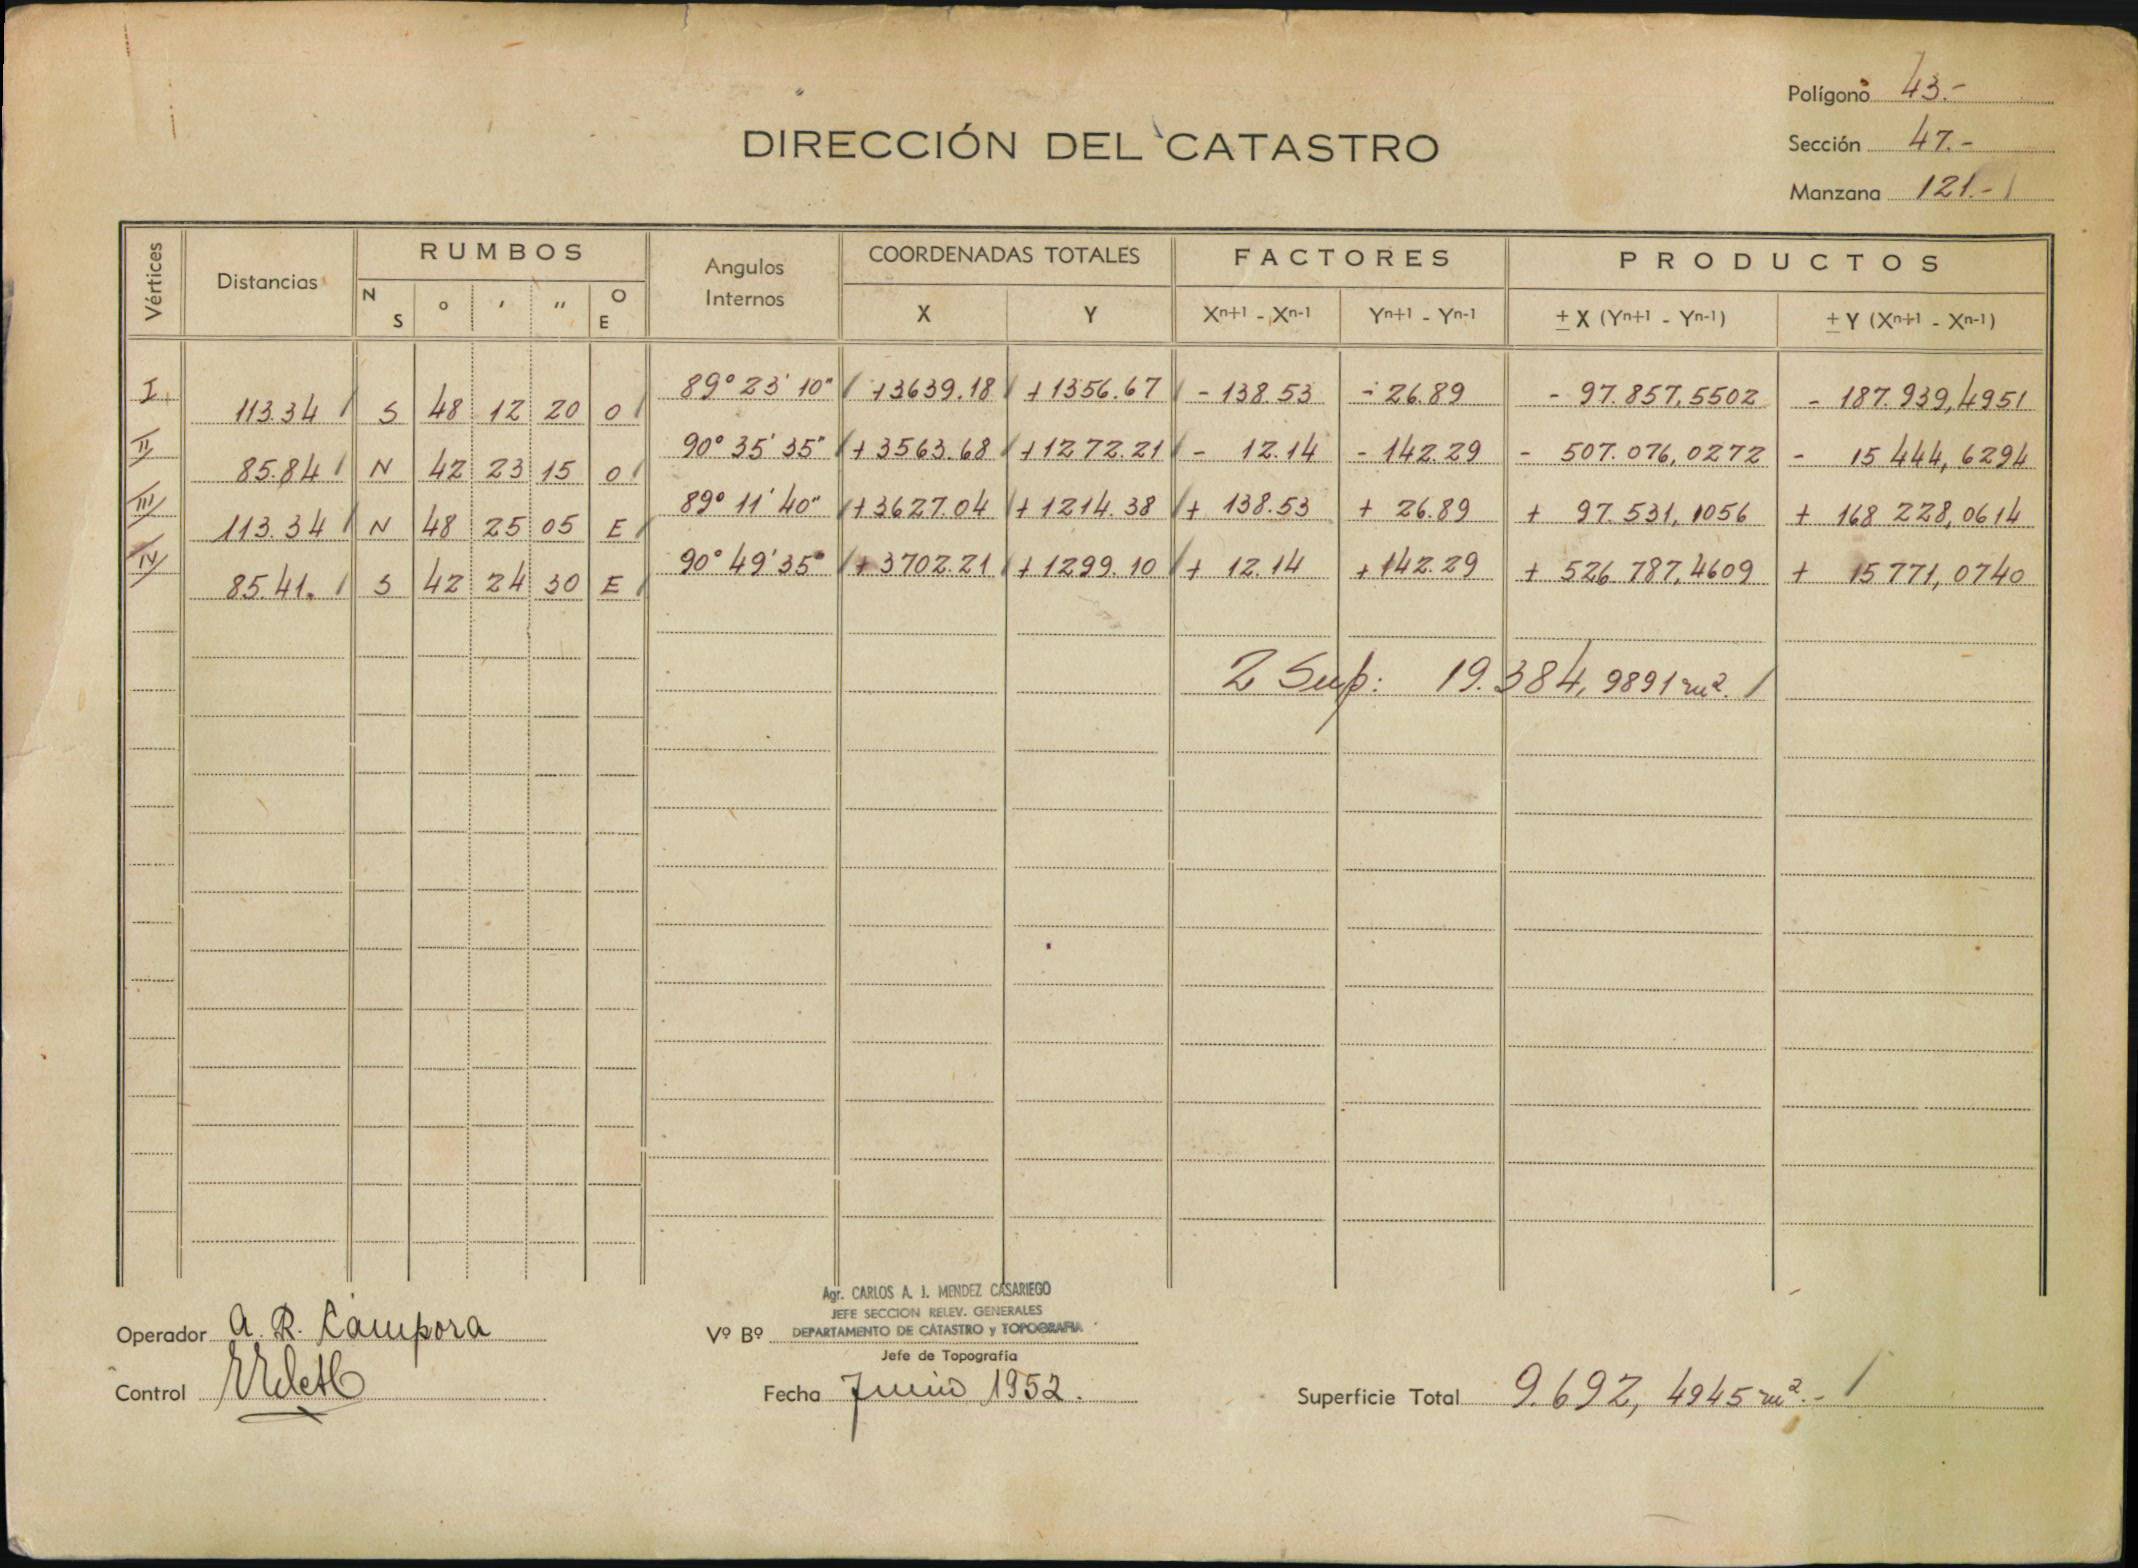 Polígono 43.-
DIRECCIÓN DEL CATASTRO
Sección 47.-
Manzana 121.-
Vértices Distancias RUMBOS Angulos Internos COORDENADAS TOTALES FACTORES PRODUCTOS
N S ° ' " O E X Y Xn+1 - Xn-1 Yn+1 - Yn-1 ± X (Yn+1 - Yn-1) ± Y (Xn+1 - Xn-1)
I 89° 23' 10" +3639.18 +1356.67 - 138.53 - 26.89 - 97.857,5502 - 187.939,4951
113.34 S 48 12 20 O
II 90° 35' 35" +3563.68 +1272.21 - 12.14 - 142.29 - 507.076,0272 - 15 444,6294
85.84 N 42 23 15 O
III 89° 11' 40" +3627.04 +1214.38 + 138.53 + 26.89 + 97.531,1056 + 168 228,0614
113.34 N 48 25 05 E
IV 90° 49' 35" +3702.21 +1299.10 + 12.14 +142.29 + 526.787,4609 + 15 771,0740
85.41. S 42 24 30 E
2 Sup: 19.384,9891 m².
Agr. CARLOS A. J. MENDEZ CASARIEGO
JEFE SECCION RELEV. GENERALES
Operador A. R. Campora Vº Bº DEPARTAMENTO DE CATASTRO y TOPOGRAFIA
Jefe de Topografía
Control Fecha Junio 1952. Superficie Total 9.692,4945 m².-